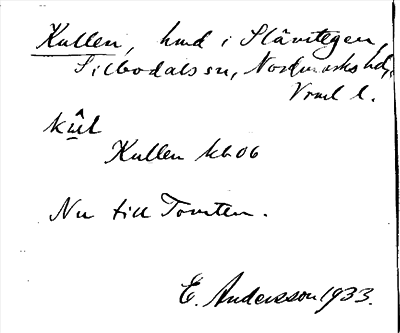 Kullen, hmd i Slävitegen,
Silbodals sn, Nordmarks hd,
Vrml l.
kûl
Kullen kb 06
Nu till Tomten.
E. Andersson 1933.